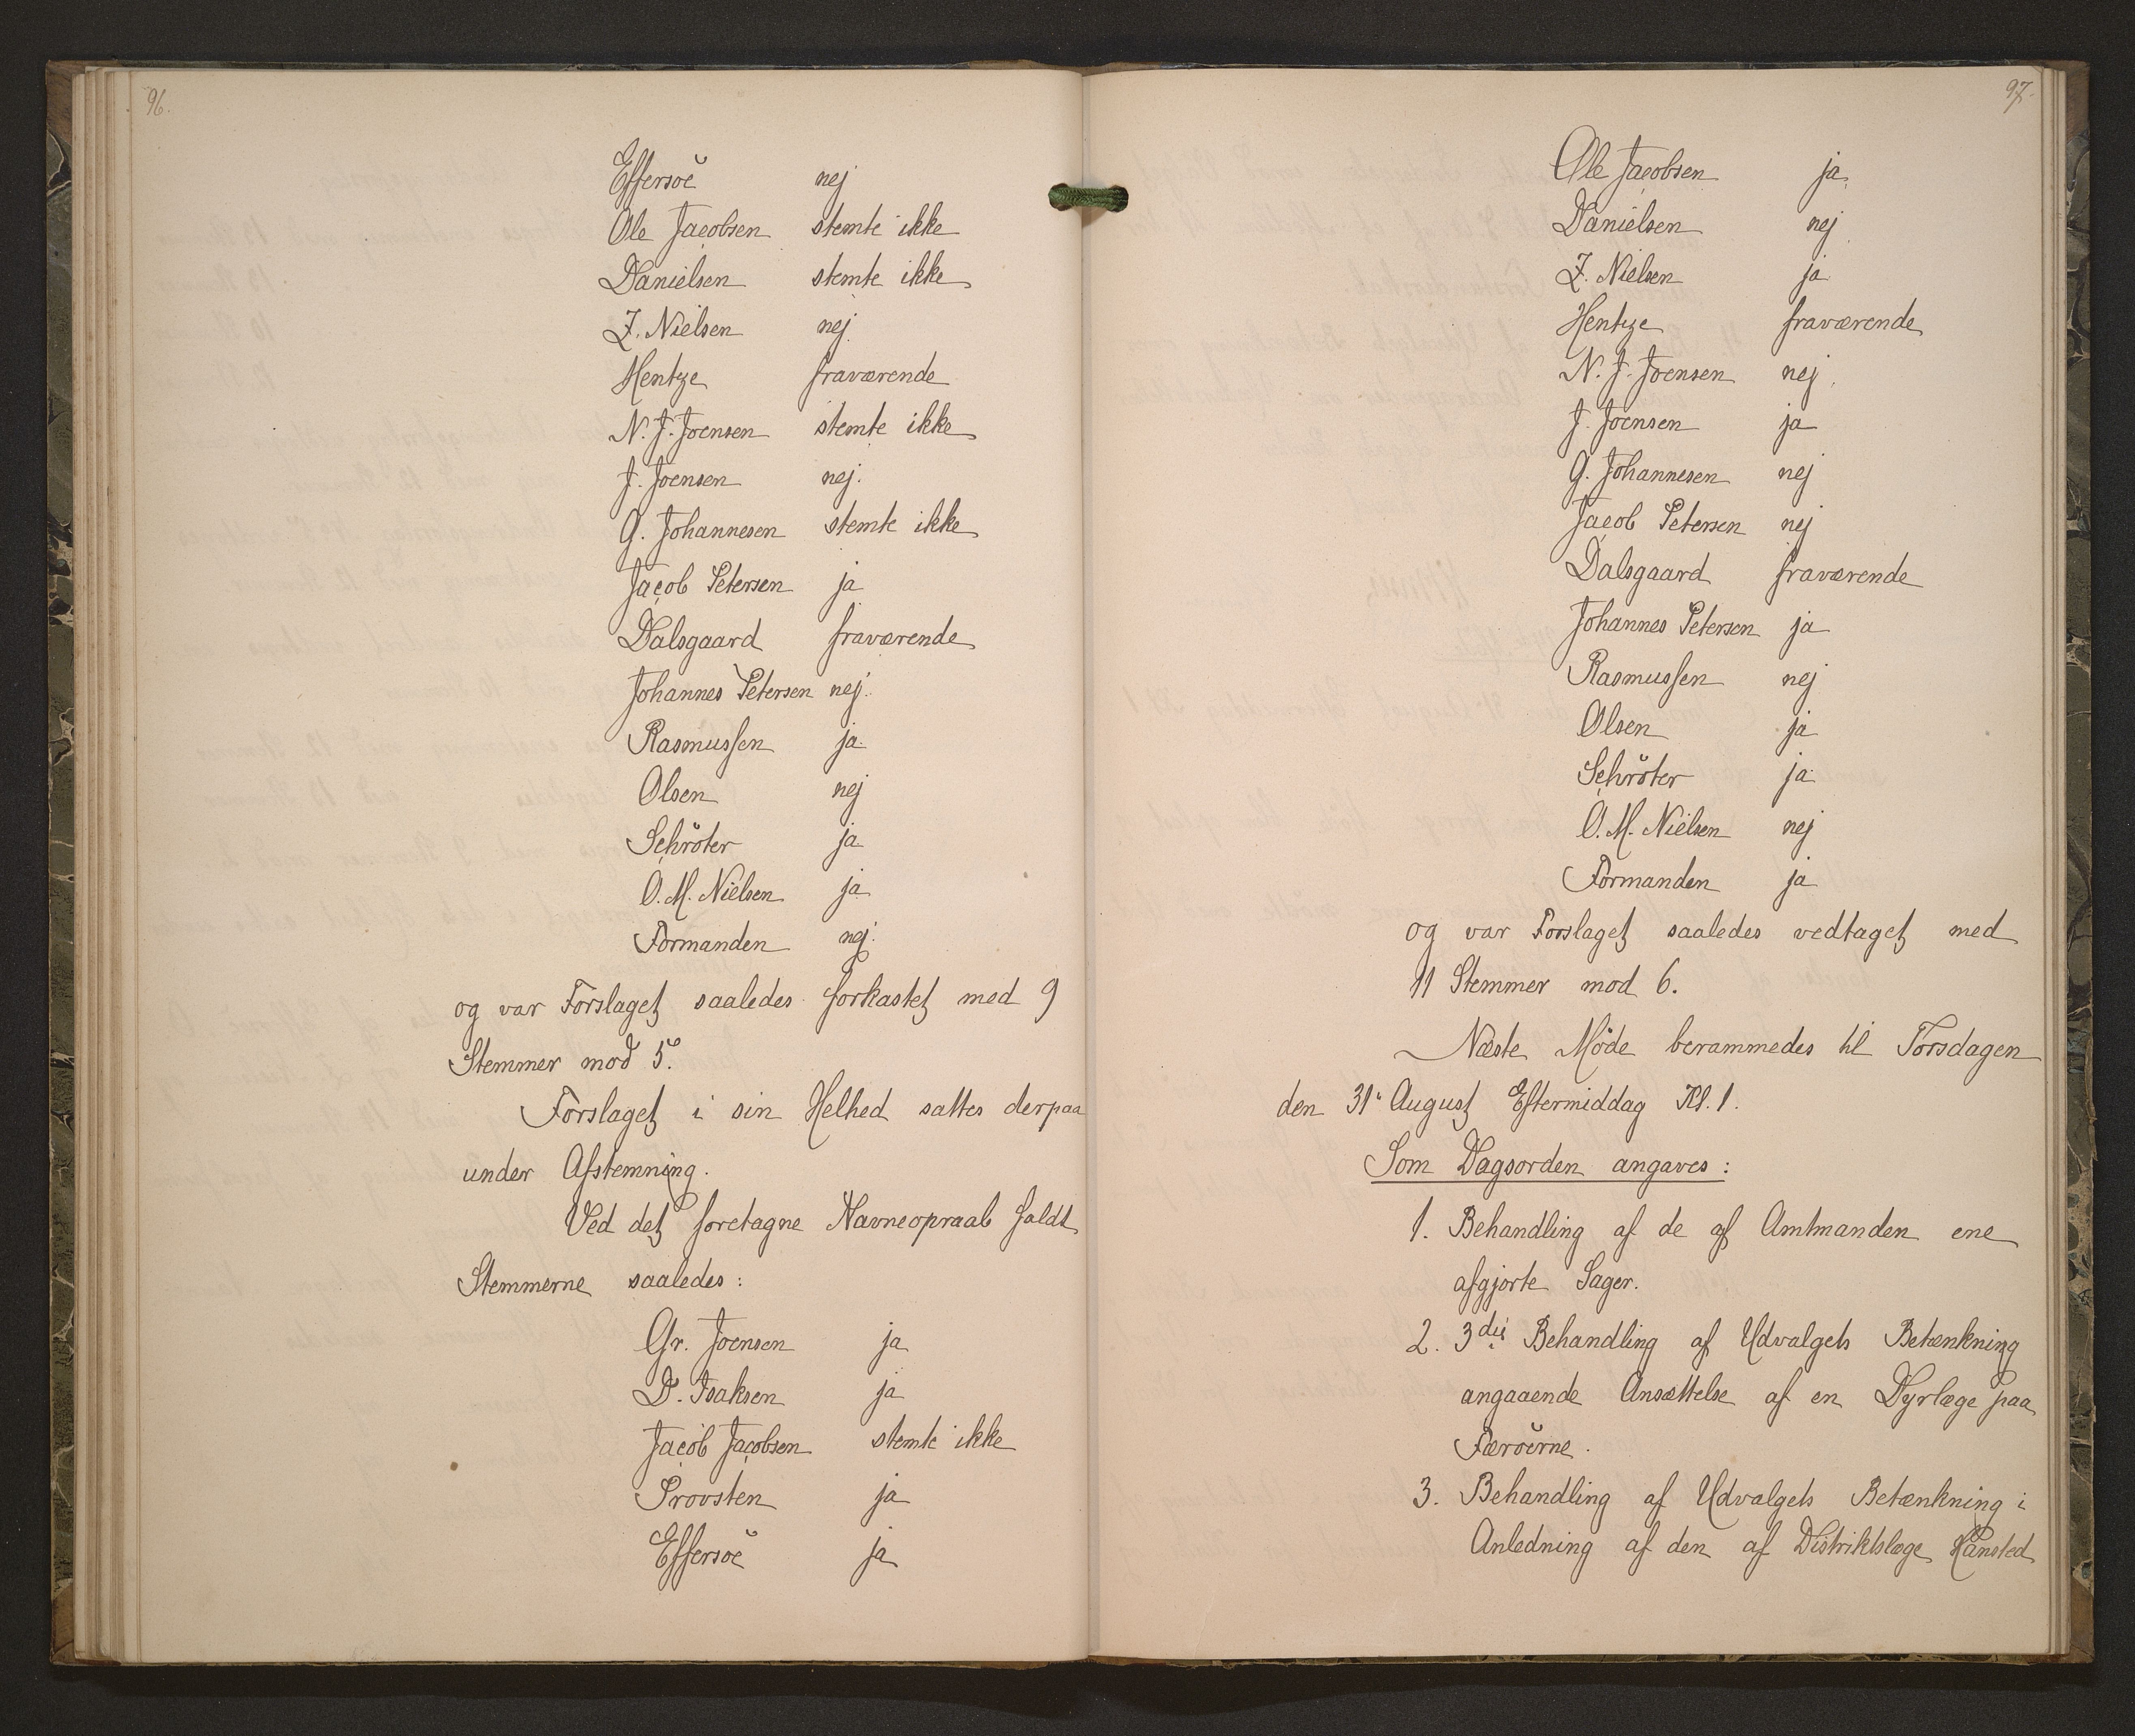 96.
Effersöe nej
Ole Jacobsen stemte ikke
Danielsen stemte ikke
Z. Nielsen nej
Hentze fraværende
N. J. Joensen stemte ikke
J. Joensen nej.
G. Johannesen stemte ikke
Jacob Petersen ja
Dalsgaard fraværende
Johannes Petersen nej.
Rasmussen ja.
Olsen nej
Schröter ja
O. M. Nielsen ja
Formanden nej.
og var Forslaget saaledes forkastet med 9
Stemmer mod 5.
Forslaget i sin Helhed sattes derpaa
under Afstemning.
Ved det foretagne Navneopraab faldt
Stemmerne saaledes:
Gr. Joensen ja
D. Isaksen ja
Jacob Jacobsen stemte ikke
Provsten ja
Effersöe ja
97.
Ole Jacobsen ja.
Danielsen nej
Z. Nielsen ja
Hentze fraværende
N. J. Joensen nej
J. Joensen ja
G. Johannesen nej
Jacob Petersen nej
Dalsgaard fraværende
Johannes Petersen ja
Rasmussen nej
Olsen ja
Schröter ja
O. M. Nielsen nej
Formanden ja
og var Forslaget saaledes vedtaget med
11 Stemmer mod 6.
Næste Möde berammedes til Torsdagen
den 31" August Eftermiddag Kl. 1.
Som Dagsorden angaves:
1. Behandling af de af Amtmanden ene
afgjorte Sager.
2. 3die Behandling af Udvalgets Betænkning
angaaende Ansættelse af en Dyrlæge paa
Færöerne.
3. Behandling af Udvalgets Betænkning i
Anledning af den af Distriktslæge Hansted